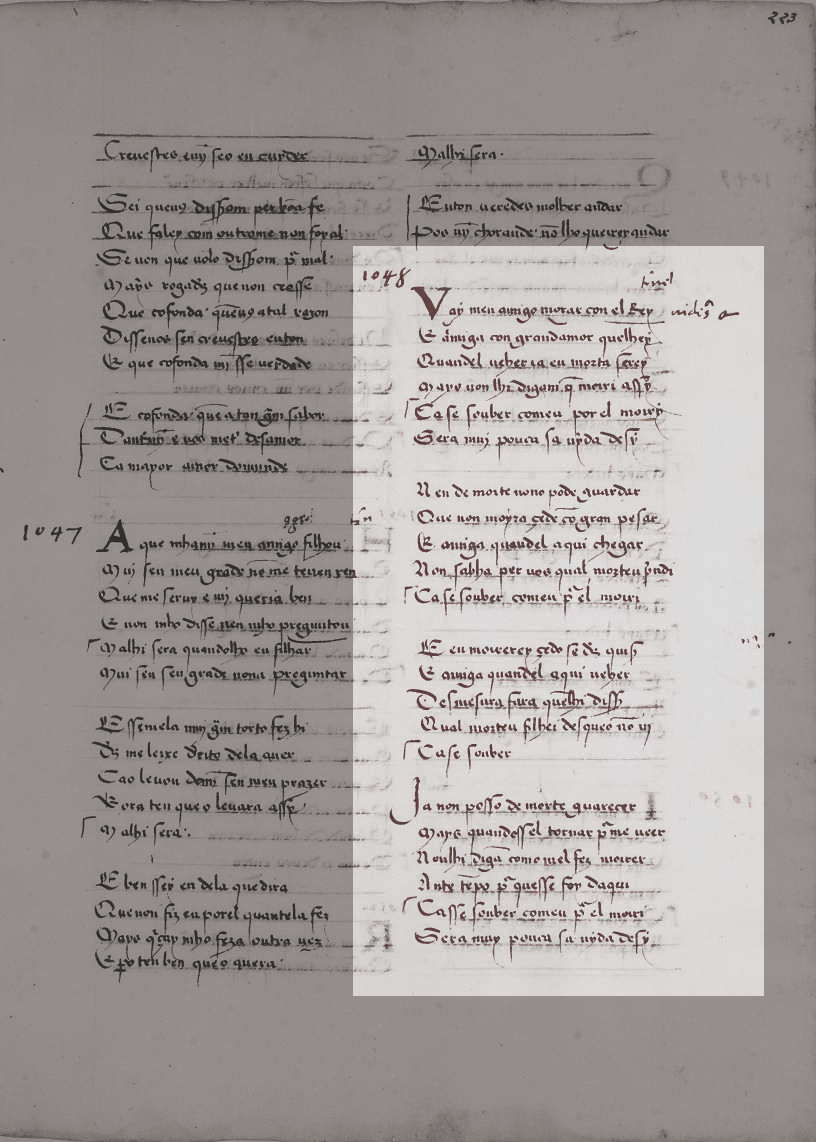 223
Crevestes, eniseo en curdes
Sei quenus dissom per boa fe
Que faley com outrome non foy al
Se ven que volo dissom pr mal
Mays rogads que non creesse
Que cofonda quenus atal razon
Dissenos sen crevestes enton
E que cofonda mi sse verdade
E cofonda que a ton gm sabor
Ca mayor
1047
A que mhamy meu amigo filhou
Muj sen meu grado no me teven ren
Que me seruy e mj queria ben
E non mho disse nen mho preguntou
Malhi sera quandolho eu filhar
Muj sen seu grado nona preguntar
E ssemela muj gm torto fez hi
ds me leixe derito dela auer
Cao levou sen meu prazer
E ora ten que o levara assy
Malhi sera
E ben ssey en dela que dira
Que non fiz eu porel quantela fez
Mays qçay mho feza outra vez
E po ten ben que o avera
Malhi sera
Enton veredes molher andar
Pos my chorande no lho querrey andar
1048
Vay meu amigo morar con el Rey
E amiga con grandamor quelhey
Quandel veher ia eu morta serey
Mays non lhi digam q moiri assy
Ca se souber comeu por el moiry
Sera muj pouca sa vyda desy
Nen de morte nono pode guardar
Que non moyra çede co gran pesar
E amiga quandel aqui chegar
Non sabha per vos qual morteu pndi
Ca se souber comeu pr el moiri
E eu moirerey çedo se ds quis
E amiga quandel aqui veher
Desmesura fara quelhi diss
Qual morteu filhei desqueo no vi
Ca se souber
Ja non posso de morte guareçer
Mays quandossel tornar pr me veer
Nonlhi diga como mel fez moirer
Ante tepo pr quesse foy daqui
Casse souber comeu pr el moiri
Sera muy pouca sa vyda desy